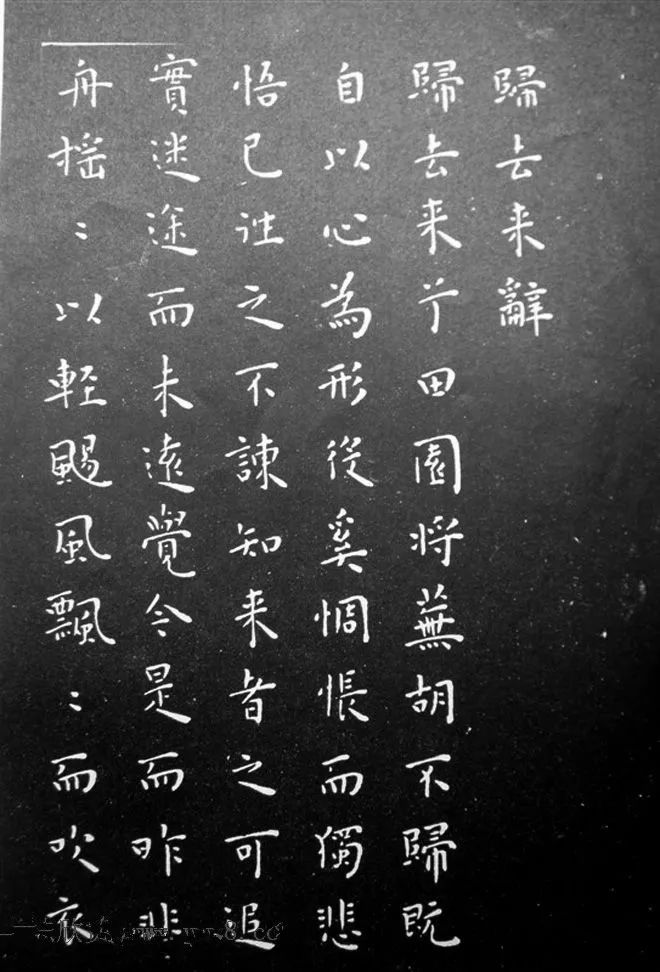 歸去来辭
歸去来兮田園將蕪胡不歸既
自以心為形役奚惆悵而獨悲
悟已往之不諫知来者之可追
實迷途而未遠覺今是而昨非
舟揺〻以輕颺風飄〻而吹衣